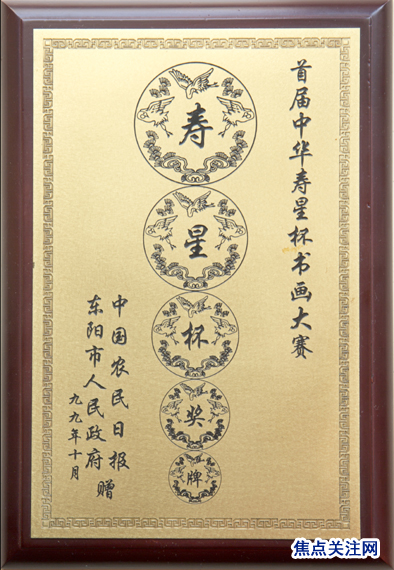 首届中华寿星杯书画大赛
寿星杯奖牌
中国农民日报
东阳市人民政府 赠
九九年十月
焦点关注网